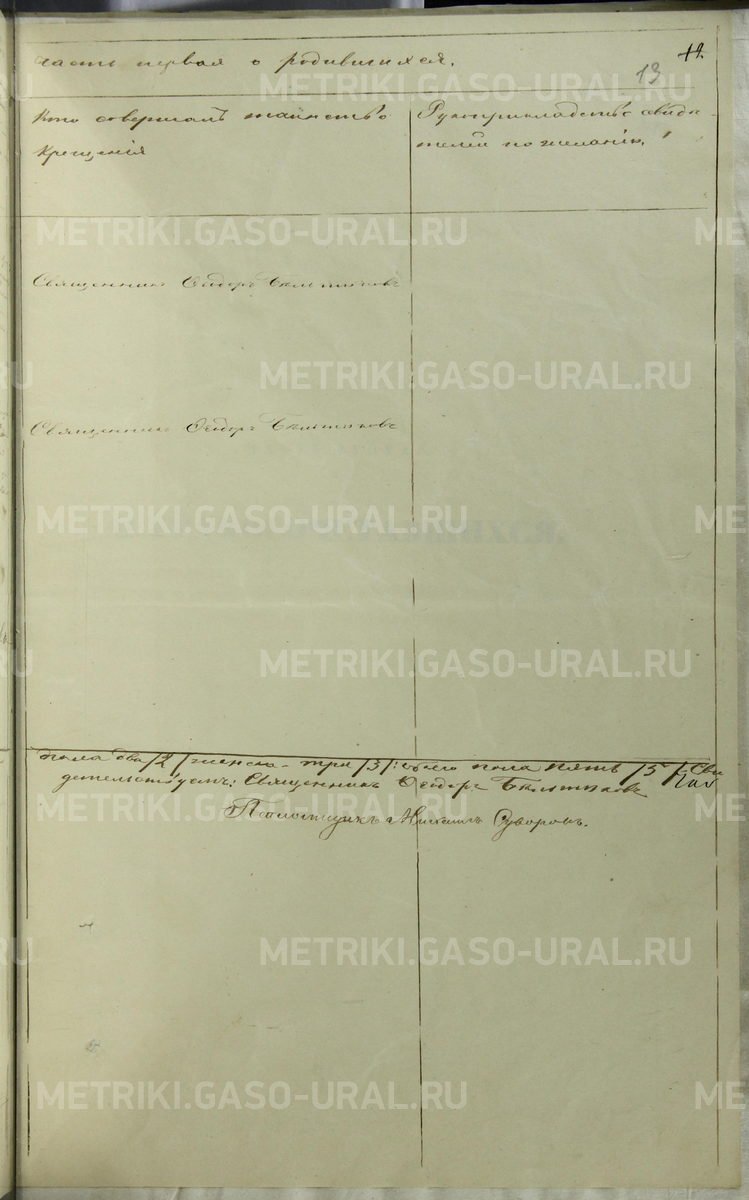 часть первая о родившихся.
12
13
Кто совершалъ таинство
крещенія
Рукоприкладство свидѣ-
телей по желанію.
METRIKI.GASO-URAL.RU
Священникъ Ѳеодоръ Бельтюковъ
METRIKI.GASO-URAL.RU
Священникъ Ѳеодоръ Бельтюковъ
METRIKI.GASO-URAL.RU
METRIKI.GASO-URAL.RU
пола два /2/ женска - три /3/: обоего пола пять /5/ Сви
детельствуемъ: Священникъ Ѳеодоръ Бельтюковъ
Псаломщикъ Михаилъ Суворовъ.
METRIKI.GASO-URAL.RU
METRIKI.GASO-URAL.RU
METRIKI.GASO-URAL.RU